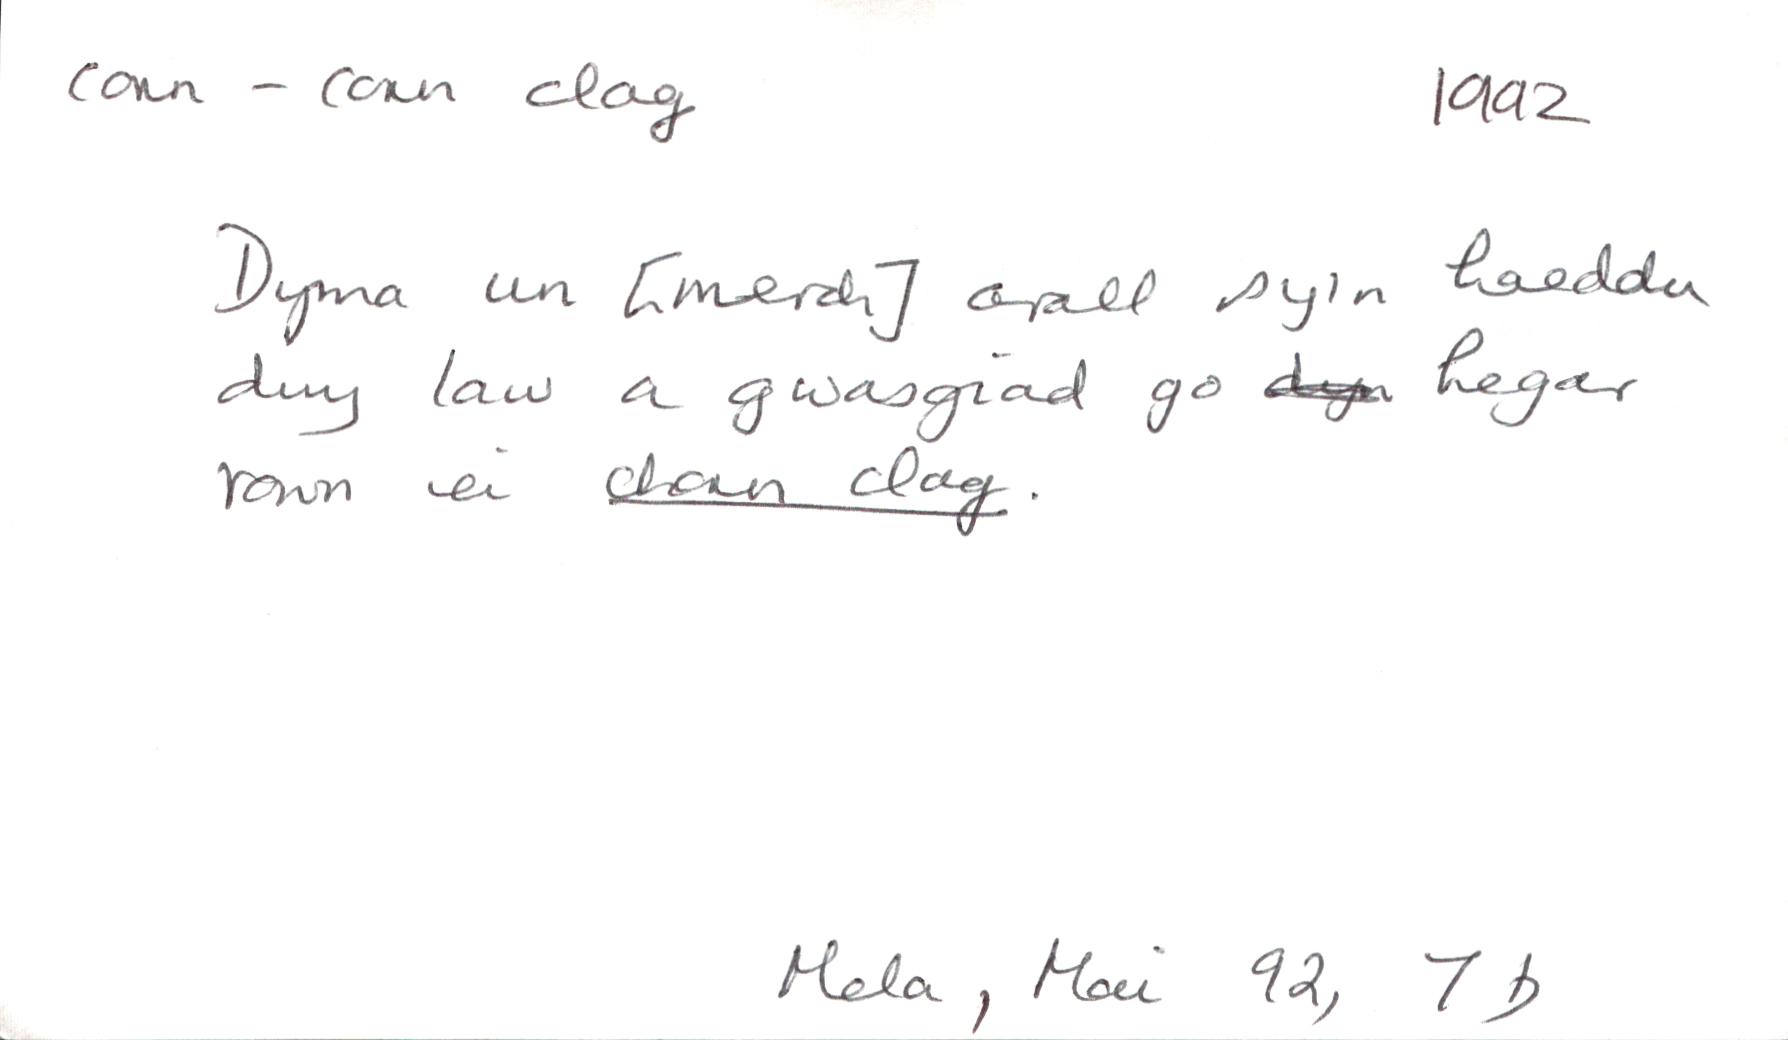 corn – corn clag 1992
Dyma un [merch] arall sy'n haeddu
dwy law a gwasgiad go hegar
rownd ei chorn clag.
Mela, Mai 92, 7 b